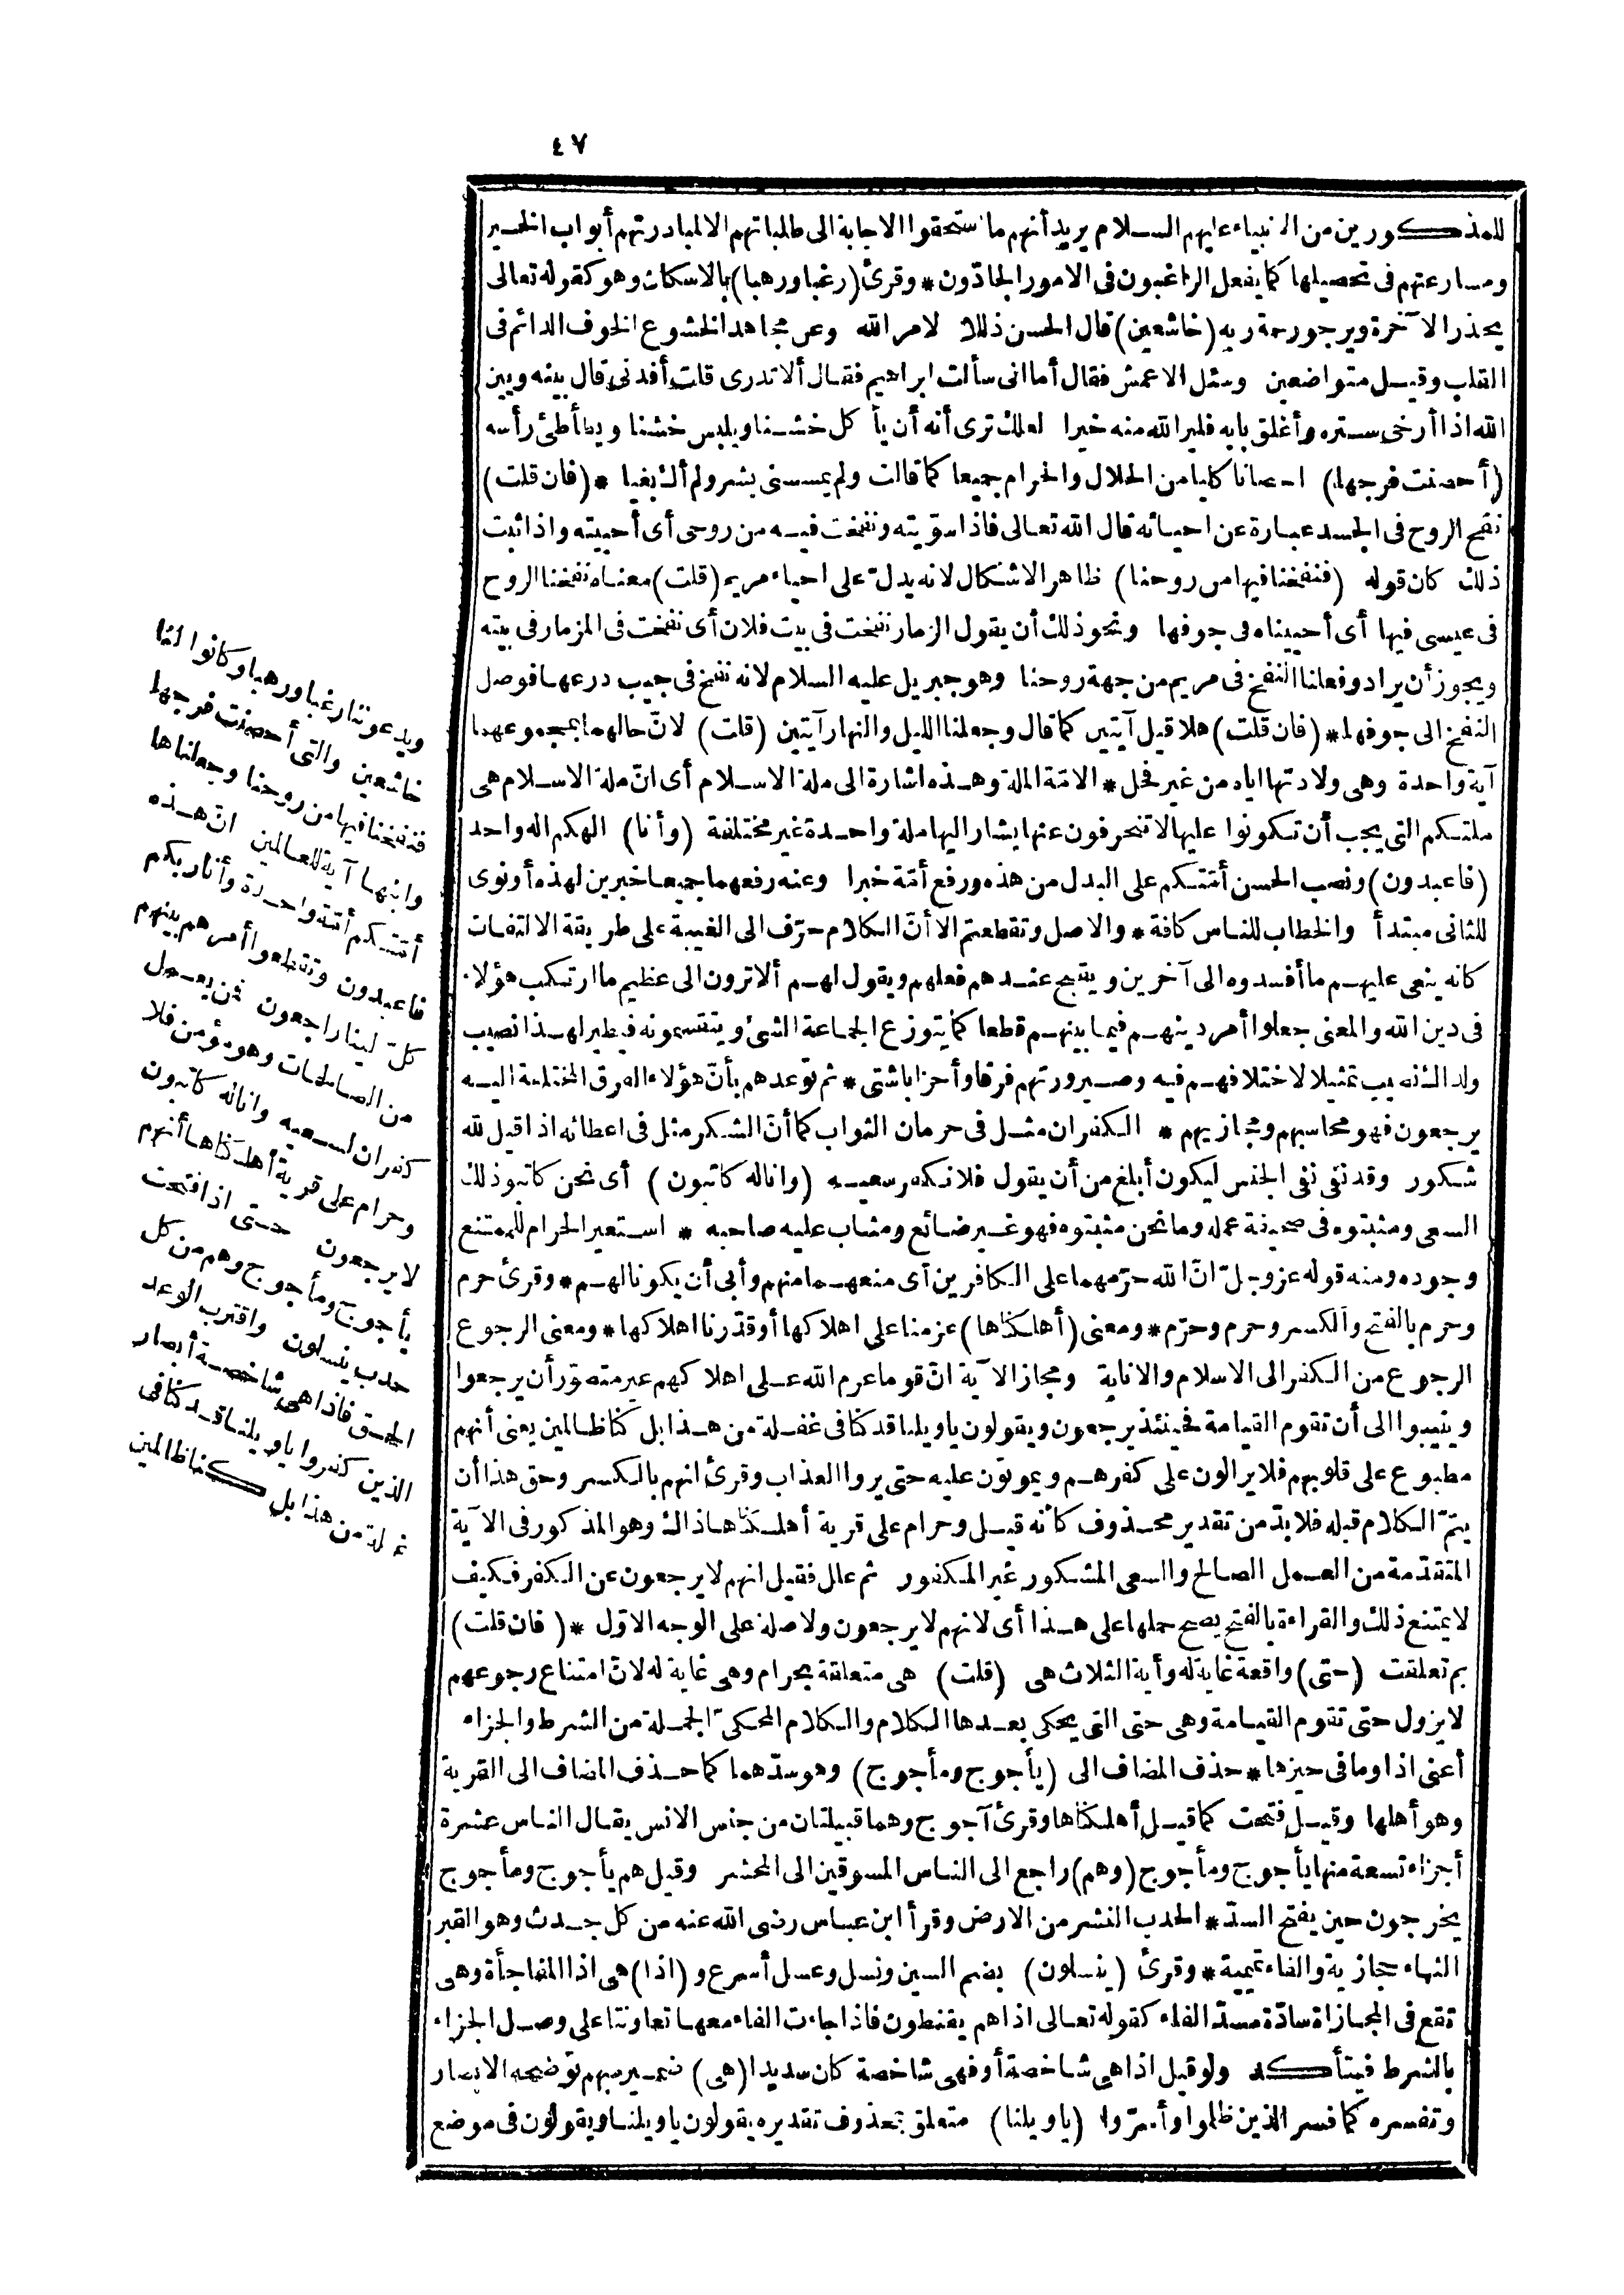 ٤٧
للمذكورين من الانبياء عليهم السلام يريد أنهم ما استحقوا الاجابة الى طلباتهم الا لمبادرتهم أبواب الخير
ومسارعتهم فى تحصيلها كما يفعل الراغبون فى الامور الجادّون * وقرئ (رغبا ورهبا) بالاسكان وهو كقوله تعالى
يحذر الآخرة ويرجو رحمة ربه (خاشعين) قال الحسن ذللا لامر الله وعن مجاهد الخشوع الخوف الدائم فى
القلب وقيل متواضعين وسئل الاعمش فقال أما انى سألت ابراهيم فقال ألا تدرى قلت أفدنى قال بينه وبين
الله اذا أرخى ستره وأغلق بابه فلير الله منه خيرا لعلك ترى أنه أن يأكل خشنا ويلبس خشنا ويطأطئ رأسه
(أحصنت فرجها) احصانا كليا من الحلال والحرام جميعا كما قالت ولم يمسسنى بشر ولم ألك بغيا * (فان قلت)
نفخ الروح فى الجسد عبارة عن احيائه قال الله تعالى فاذا سوّيته ونفخت فيه من روحى أى أحييته واذا ثبت
ذلك كان قوله (فنفخنا فيها من روحنا) ظاهر الاشكال لانه يدلّ على احياء مريم (قلت) معناه نفخنا الروح
فى عيسى فيها أى أحييناه فى جوفها ونحو ذلك أن يقول الزمار نفخت فى بيت فلان أى نفخت فى المزمار فى بيته
ويجوز أن يراد وفعلنا النفخ فى مريم من جهة روحنا وهو جبريل عليه السلام لانه نفخ فى جيب درعها فوصل
النفخ الى جوفها * (فان قلت) هلا قيل آيتين كما قال وجعلنا الليل والنهار آيتين (قلت) لانّ حالهما بمجموعهما
آية واحدة وهى ولادتها اياه من غير فحل * الامّة الملة وهذه اشارة الى ملة الاسلام أى انّ ملة الاسلام هى
ملتكم التى يجب أن تكونوا عليها لا تنحرفون عنها يشار اليها ملة واحدة غير مختلفة (وأنا) الهكم اله واحد
(فاعبدون) ونصب الحسن أمّتكم على البدل من هذه ورفع أمّة خبرا وعنه رفعهما جميعا خبرين لهذه أو نوى
للثانى مبتدأ والخطاب للناس كافة * والاصل وتقطعتم الا أنّ الكلام حرّف الى الغيبة على طريقة الالتفات
كانه ينعى عليهم ما أفسدوه الى آخرين ويقبح عندهم فعلهم ويقول لهم ألا ترون الى عظيم ما ارتكب هؤلاء
فى دين الله والمعنى جعلوا أمر دينهم فيما بينهم قطعا كما يتوزع الجماعة الشئ ويتقسمونه فيطير لهذا نصيب
ولذاك نصيب تمثيلا لاختلافهم فيه وصيرورتهم فرقا وأحزابا شتى * ثم توعدهم بأنّ هؤلاء الفرق المختلفة اليه
يرجعون فهو محاسبهم ومجازيهم * الكفران مثل فى حرمان الثواب كما أنّ الشكر مثل فى اعطائه اذا قيل لله
شكور وقد نفى نفى الجنس ليكون أبلغ من أن يقول فلا نكفر سعيه (وانا له كاتبون) أى نحن كاتبو ذلك
السعى ومثبتوه فى صحيفة عمله وما نحن مثبتوه فهو غير ضائع ومثاب عليه صاحبه * استعير الحرام للممتنع
وجوده ومنه قوله عز وجلّ انّ الله حرّمهما على الكافرين أى منعهما منهم وأبى أن يكونا لهم * وقرئ حرم
وحرم بالفتح والكسر وحرم وحرّم * ومعنى (أهلكناها) عزمنا على اهلاكها أو قدّرنا اهلاكها * ومعنى الرجوع
الرجوع من الكفر الى الاسلام والانابة ومجاز الآية انّ قوما عزم الله على اهلاكهم غير متصوّر أن يرجعوا
وينيبوا الى أن تقوم القيامة فحينئذ يرجعون ويقولون يا ويلنا قد كنا فى غفلة من هذا بل كنا ظالمين يعنى أنهم
مطبوع على قلوبهم فلا يزالون على كفرهم ويموتون عليه حتى يروا العذاب وقرئ انهم بالكسر وحق هذا أن
يتمّ الكلام قبله فلا بدّ من تقدير محذوف كأنه قيل وحرام على قرية أهلكناها ذاك وهو المذكور فى الآية
المتقدّمة من العمل الصالح والسعى المشكور غير المكفور ثم علل فقيل انهم لا يرجعون عن الكفر فكيف
لا يمتنع ذلك والقراءة بالفتح يصح حملها على هذا أى لانهم لا يرجعون ولا صلة على الوجه الاوّل * (فان قلت)
بم تعلقت (حتى) واقعة غاية له وأية الثلاث هى (قلت) هى متعلقة بحرام وهى غاية له لانّ امتناع رجوعهم
لا يزول حتى تقوم القيامة وهى حتى التى يحكى بعدها الكلام والكلام المحكىّ الجملة من الشرط والجزاء
أعنى اذا وما فى حيزها * حذف المضاف الى (يأجوج ومأجوج) وهو سدّهما كما حذف المضاف الى القرية
وهو أهلها وقيل فتحت كما قيل أهلكناها وقرئ آجوج وهما قبيلتان من جنس الانس يقال الناس عشرة
أجزاء تسعة منها يأجوج ومأجوج (وهم) راجع الى الناس المسوقين الى المحشر وقيل هم يأجوج ومأجوج
يخرجون حين يفتح السدّ * الحدب النشز من الارض وقرأ ابن عباس رضى الله عنه من كل جدث وهو القبر
الثاء حجازية والفاء تميمية * وقرئ (ينسلون) بضم السين ونسل وعسل أسرع و(اذا) هى اذا المفاجأة وهى
تقع فى المجازاة سادّة مسدّ الفاء كقوله تعالى اذا هم يقنطون فاذا جاءت الفاء معها تعاونتا على وصل الجزاء
بالشرط فيتأكد ولو قيل اذا هى شاخصة أو فهى شاخصة كان سديدا (هى) ضمير مبهم توضحه الابصار
وتفسره كما فسر الذين ظلموا وأسرّوا (يا ويلنا) متعلق بمحذوف تقديره يقولون يا ويلنا ويقولون فى موضع
ويدعوننا رغبا ورهبا وكانوا لنا
خاشعين والتى أحصنت فرجها
فنفخنا فيها من روحنا وجعلناها
وابنها آية للعالمين انّ هذه
أمّتكم أمّة واحدة وأنا ربكم
فاعبدون وتقطعوا أمرهم بينهم
كلّ الينا راجعون فمن يعمل
من الصالحات وهو مؤمن فلا
كفران لسعيه وانا له كاتبون
وحرام على قرية أهلكناها أنهم
لا يرجعون حتى اذا فتحت
يأجوج ومأجوج وهم من كل
حدب ينسلون واقترب الوعد
الحق فاذا هى شاخصة أبصار
الذين كفروا يا ويلنا قد كنا فى
غفلة من هذا بل كنا ظالمين